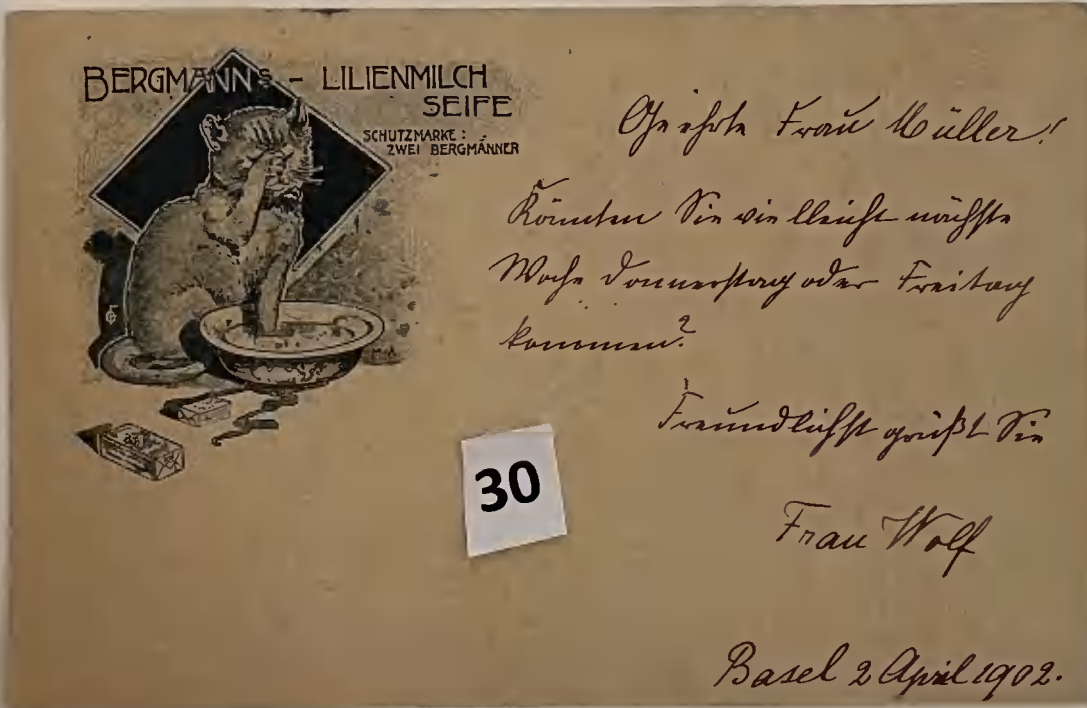 BERGMANNS – LILIENMILCH
SEIFE
SCHUTZMARKE:
ZWEI BERGMÄNNER
Geehrte Frau Müller!
Könnten Sie vielleicht nächste
Woche Donnerstag oder Freitag
kommen?
Freundlichst grüßt Sie
Frau Wolf
Basel 2 April 1902.
30